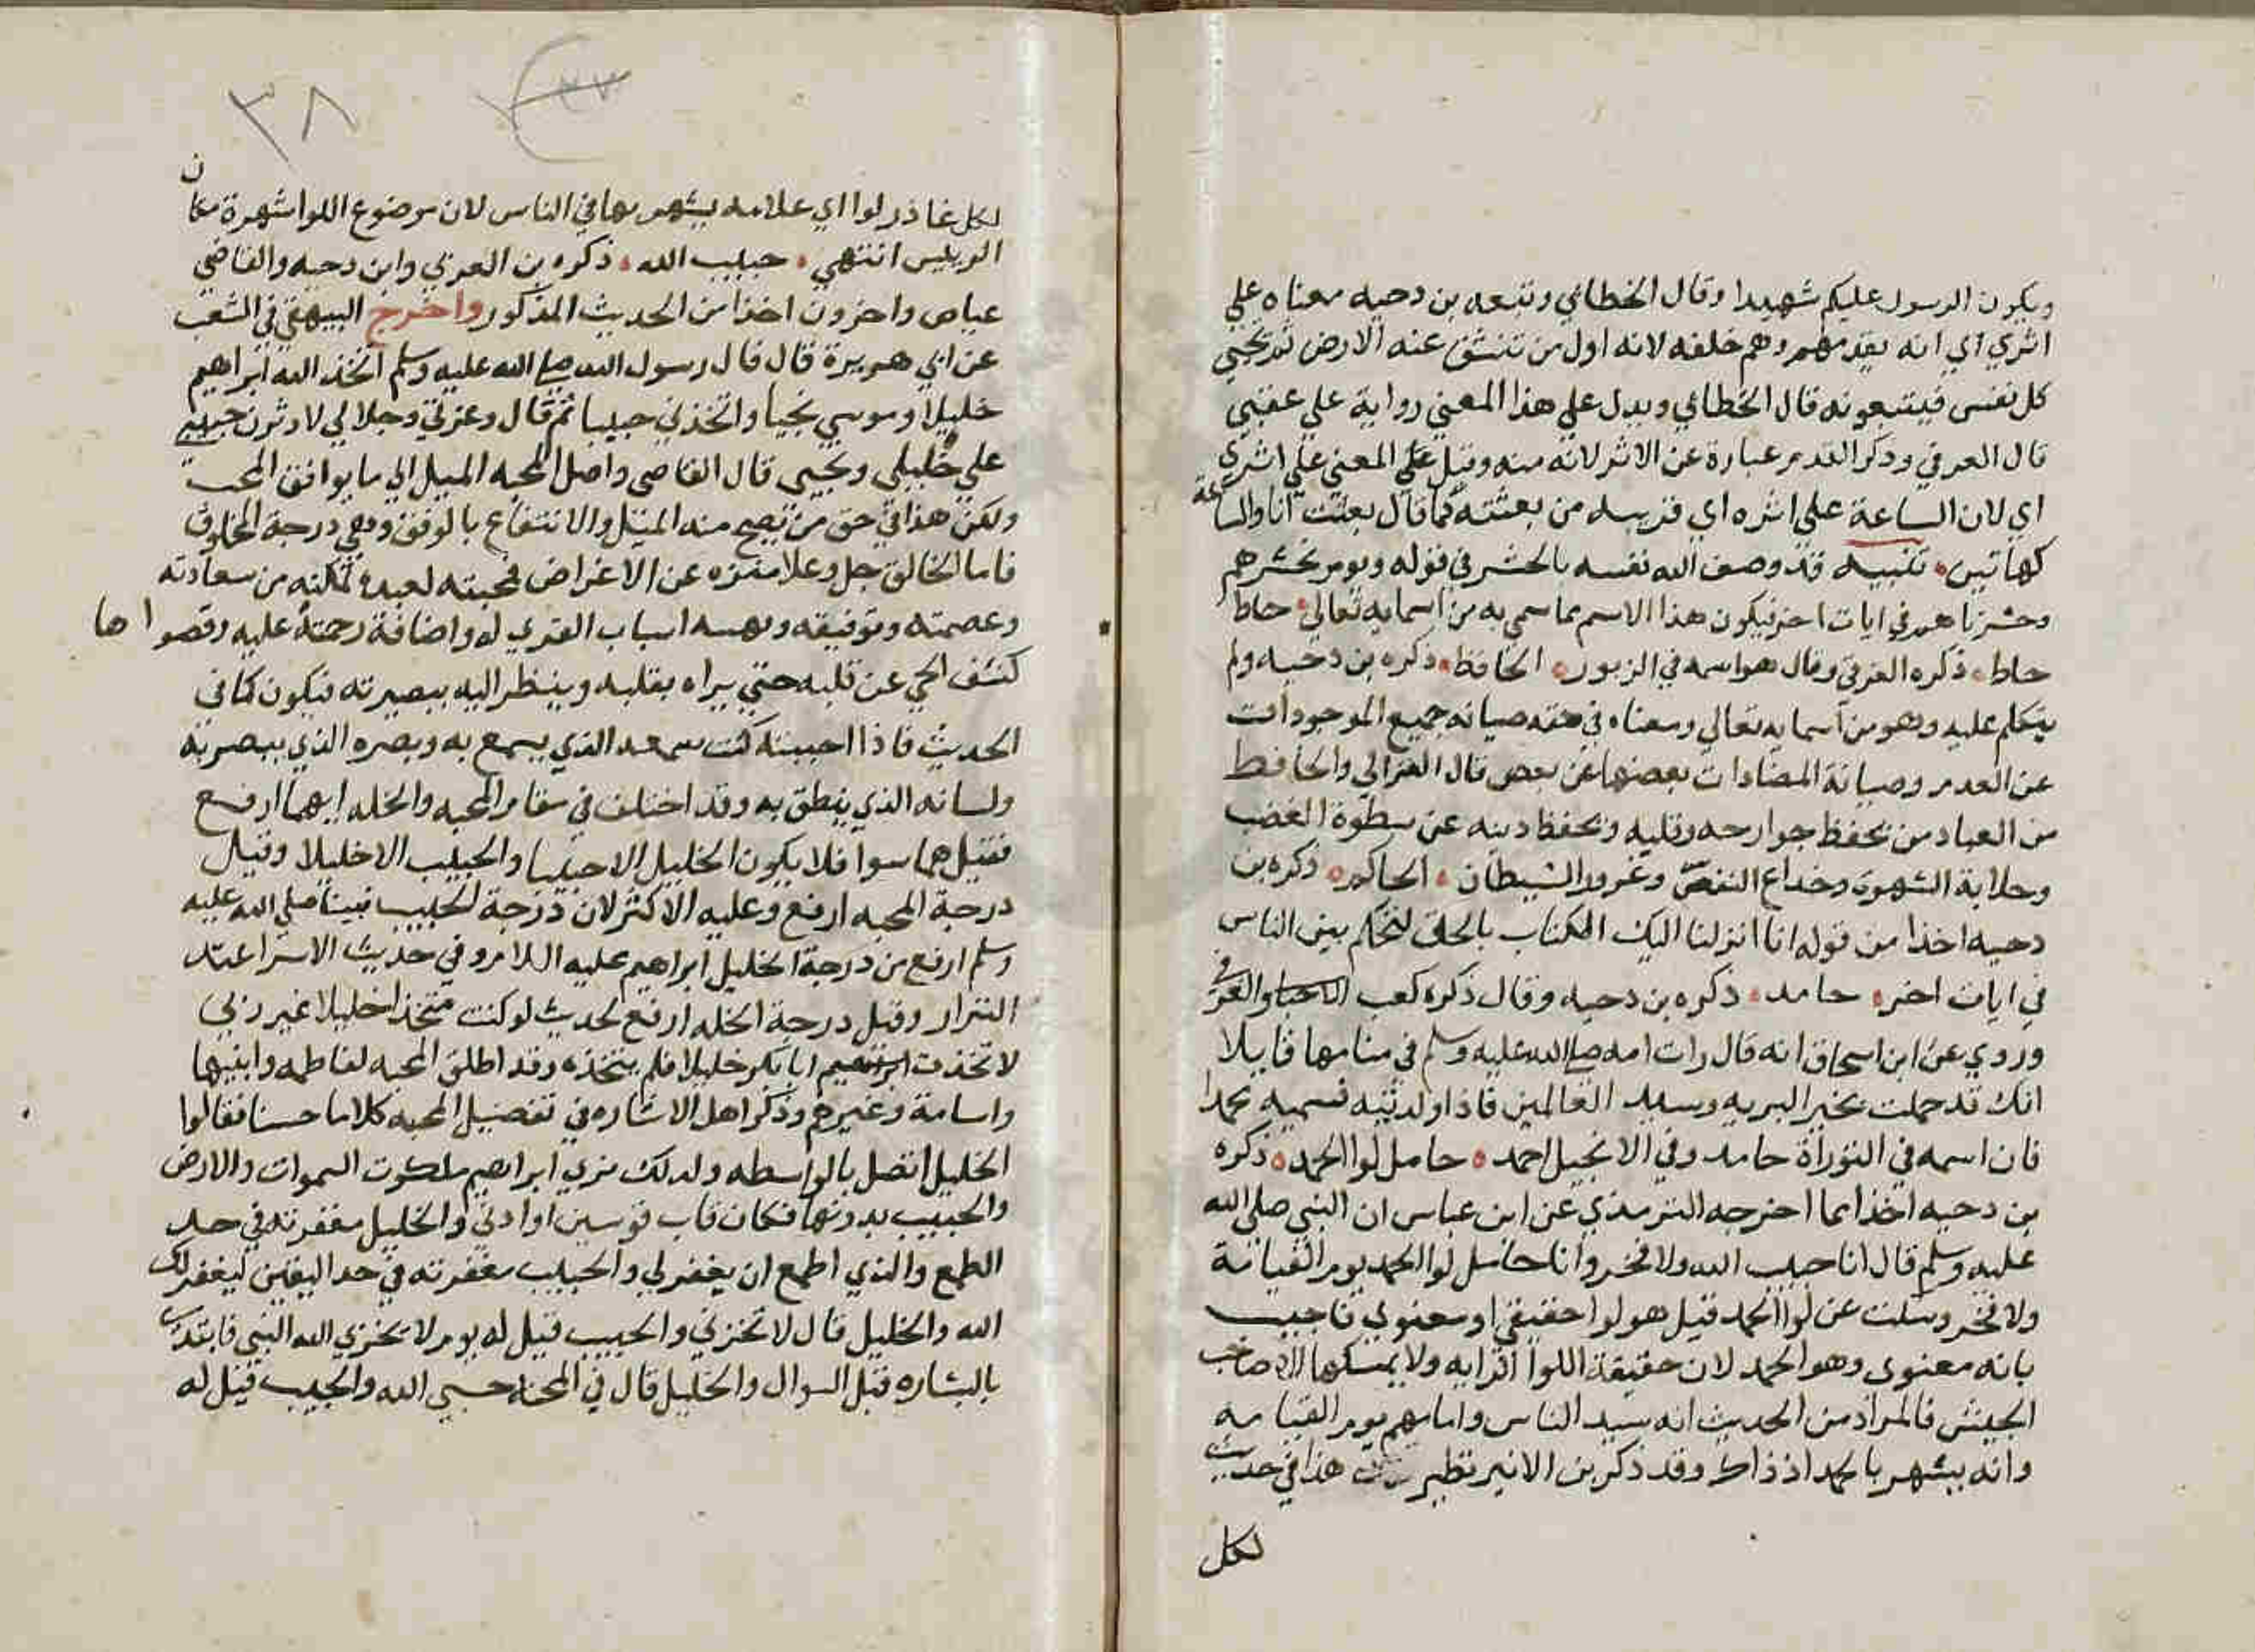 ويكون الرسول عليكم شهيدا وقال الخطابي وتبعه بن دحيه معناه علي
اثري اي انه يقدمهم وهم خلفه لانه اول من تنشق عنه الارض ثم تجيي
كل نفس فيتبعونه قال الخطابي ويدل علي هذا المعني رواية علي عقبي
قال العزفي وذكر القدم عبارة عن الاثر لانه منه وقيل علي المعني علي اثري
اي لان الساعة علي اثره اي قريبه من بعثته كما قال بعثت انا والساعة
كهاتين تنبيه قد وصف الله نفسه بالحشر في قوله ويوم نحشرهم
وحشرناهم في ايات اخر فيكون هذا الاسم مما سمي به من اسمايه تعالي حاط
حاط ذكره العزفي وقال هو اسمه في الزبور الحافظ ذكره بن دحيه ولم
يتكلم عليه وهو من اسمايه تعالي ومعناه في حقه صيانه جميع الموجودات
عن العدم وصيانة المضادات بعضها عن بعض قال الغزالي والحافظ
من العباد من يحفظ جوارحه وقلبه ويحفظ دينه عن سطوة الغضب
وحلابة الشهوة وخداع النفس وغرور الشيطان الحاكم ذكره بن
دحيه اخذا من قوله انا انزلنا اليك الكتاب بالحق لتحكم بين الناس
في ايات اخر حامد ذكره بن دحيه وقال ذكره كعب الاحبار والعزفي
وروي عن ابن اسحاق انه قال رات امه صلي الله عليه وسلم في منامها قايلا
انك قد حملت بخير البريه وسيد العالمين فاذا ولدتيه فسميه محمدا
فان اسمه في التوراة حامد وفي الانجيل احمد حامل لوا الحمد ذكره
بن دحيه اخذا مما اخرجه الترمذي عن ابن عباس ان النبي صلي الله
عليه وسلم قال انا حبيب الله ولا فخر وانا حامل لوا الحمد يوم القيامة
ولا فخر وسئلت عن لوا الحمد فقيل هو لوا حقيقي او معنوي فاجيب
بانه معنوي وهو الحمد لان حقيقة اللوا الرايه ولا يمسكها الا صاحب
الجيش فالمراد من الحديث انه سيد الناس وامامهم يوم القيامه
وانه يشهر بالحمد اذ ذاك وقد ذكر بن الاثير نظير هذا في حديث
لكل
٣٨
لكل غادر لوا اي علامه يشهر بها في الناس لان موضوع اللوا شهرة مكان
الرييس انتهي حبيب الله ذكره بن العربي وابن دحيه والقاضي
عياض واخرون اخذا من الحديث المذكور واخرج البيهقي في الشعب
عن ابي هريرة قال قال رسول الله صلي الله عليه وسلم اتخذ الله ابراهيم
خليلا وموسي نجيا واتخذني حبيبا ثم قال وعزتي وجلالي لاوثرن حبيبي
علي خليلي ونجيي قال القاضي واصل المحبه الميل الي ما يوافق المحب
ولكن هذا في حق من يصح منه الميل والانتفاع بالوفق وهي درجة المخلوق
فاما الخالق جل وعلا منزه عن الاغراض فمحبته لعبده تمكنه من سعادته
وعصمته وتوفيقه وتهيئه اسباب القرب له واضافة رحمته عليه وقصواها
كشف الحجب عن قلبه حتي يراه بقلبه وينظر اليه ببصيرته فيكون كما في
الحديث فاذا احببته كنت سمعه الذي يسمع به وبصره الذي يبصر به
ولسانه الذي ينطق به وقد اختلف في مقام المحبه والخله ايهما ارفع
فقيل هما سوا فلا يكون الخليل الا حبيبا والحبيب الا خليلا وقيل
درجة المحبه ارفع وعليه الاكثر لان درجة الحبيب نبينا صلي الله عليه
وسلم ارفع من درجة الخليل ابراهيم عليه السلام وفي حديث الاسرا عند
البزار وقيل درجة الخله ارفع لحديث لو كنت متخذا خليلا غير ربي
لاتخذت ابا بكر خليلا فلم يتخذه وقد اطلق المحبه لفاطمه وابنيها
واسامة وغيرهم وذكر اهل الاشاره في تفضيل المحبه كلاما حسنا فقالوا
الخليل اتصل بالواسطه ولذلك نري ابراهيم ملكوت السموات والارض
والحبيب بدونها فكان قاب قوسين او ادني والخليل مغفرته في حد
الطمع والذي اطمع ان يغفر لي والحبيب مغفرته في حد اليقين ليغفر لك
الله والخليل قال لا تخزني والحبيب قيل له يوم لا يخزي الله النبي فابتدئ
بالبشاره قبل السوال والخليل قال في المحنه حسبي الله والحبيب قيل له